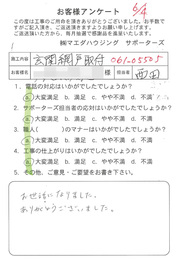 お客様アンケート
5/4
この度は工事のご発注を頂きましてありがとうございました。お手数で
すがご記入頂き、ご返送頂きますようお願い申し上げます。
ご返送頂いた方から、毎月抽選で感謝品を進呈いたします。
㈱マエダハウジング サポーターズ
工事内容 玄関網戸取付 061-05505
お客様名 様 担当者 西田
1. 電話の対応はいかがでしたでしょうか?
a. 大変満足 b. 満足 c. やや不満 d. 不満
2. サポーターズ担当者の応対はいかがでしたでしょうか?
a. 大変満足 b. 満足 c. やや不満 d. 不満
3. 職人( )のマナーはいかがでしたでしょうか?
a. 大変満足 b. 満足 c. やや不満 d. 不満
4. 工事の仕上がりはいかがでしたでしょうか?
a. 大変満足 b. 満足 c. やや不満 d. 不満
5. その他、ご意見・ご要望をお書き下さい。
お世話になりました。
ありがとうございました。